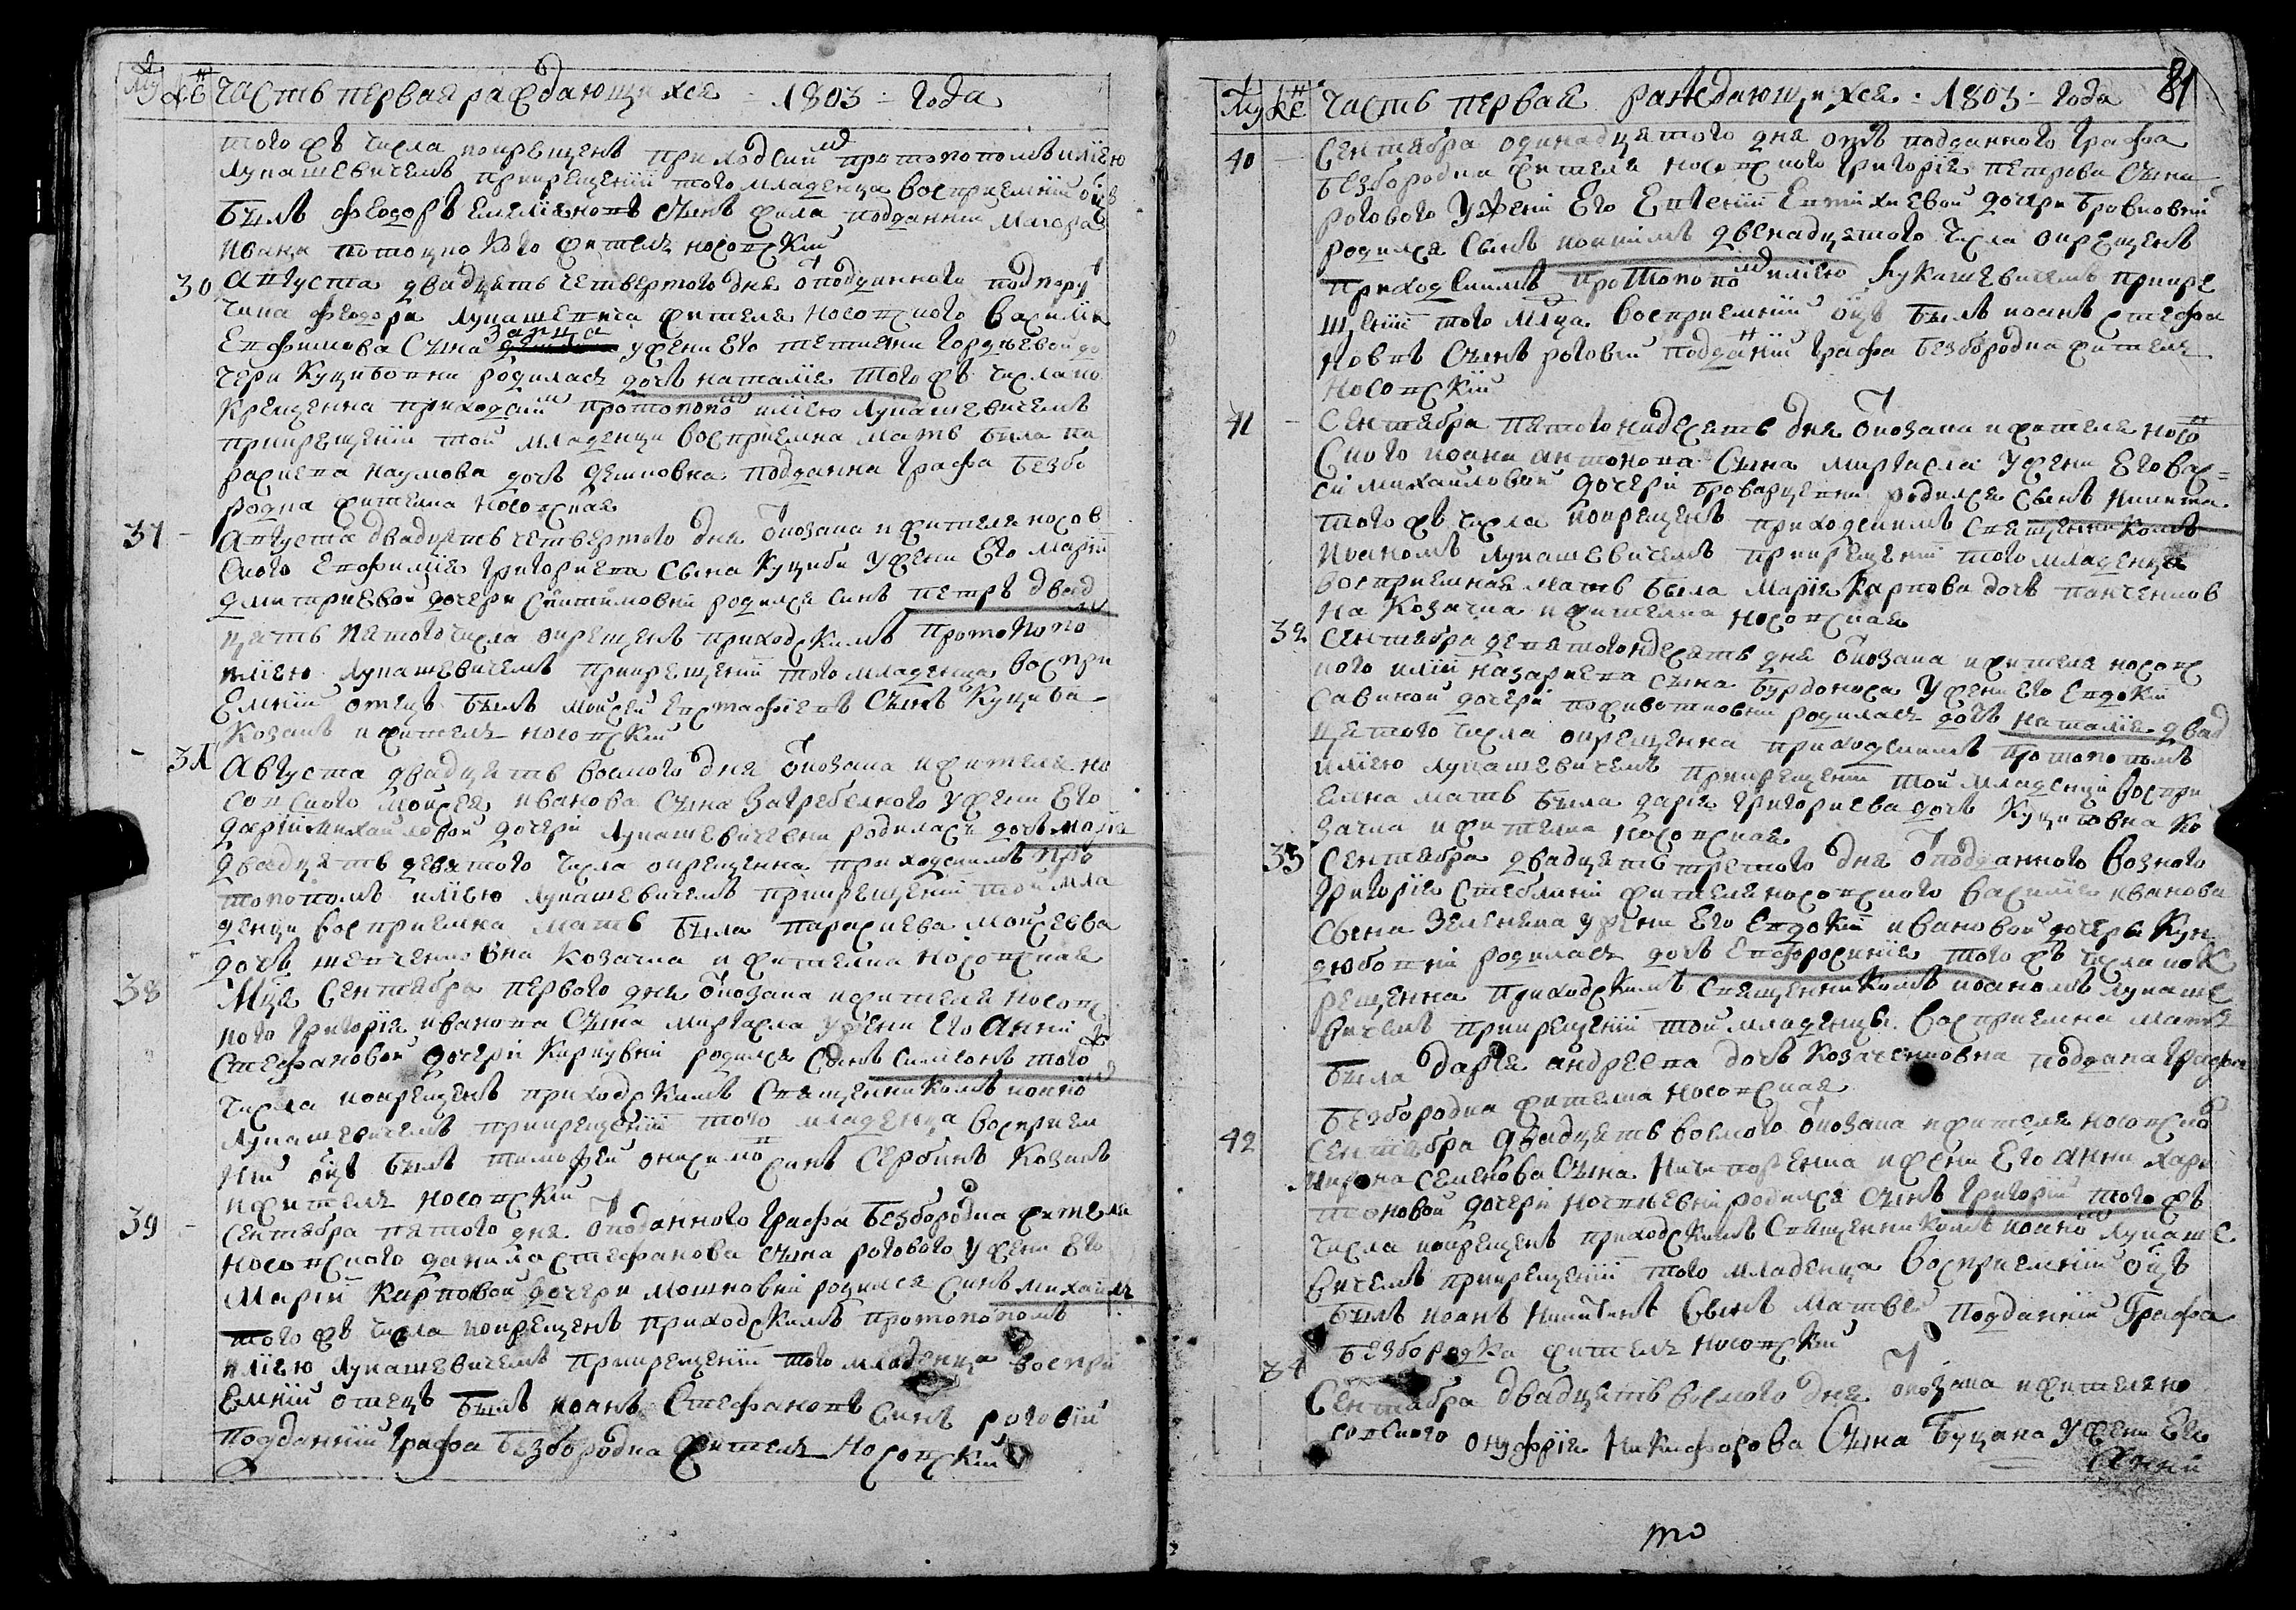 Му Же Часть первая раждающихся 1803 года
того жъ числа покрещенъ приходским протопопомъ илією
Лукашевичемъ прикрещеніи того младенца восприемній оцъ
былъ феодоръ емеліяновъ сынъ подданній маіора
Ивана жителъ носовскій
30 Августа двадцать четвертого дня от подданного подпору
чика феодора Лукашевича жителя носовского Василія
Ефимова сына Заяца у жени его Гордѣевой до
чери Куцибовни родиласъ дочъ наталія того жъ числа по
крещенна приходским протопопом илією Лукашевичемъ
прикрещеніи той младенци восприемна мать била па
раскева наумова дочъ подданна Графа Безбо
родка жителка носовская
31 Августа двадцать четвертого дня от козака и жителя носов
ского Евфимія Григориева сына Куциби у жени его Маріи
Дмитриевой дочери родился синъ петръ двад
цать пятого числа окрещенъ приходскимъ протопопом
илією Лукашевичемъ прикрещеніи того младенца воспри
емній отецъ былъ Мойсей Евстафіевъ сынъ Куциба
козакъ и жителъ носовскій
Августа двадцать восмого дня от козака и жителя но
совского Мойсея иванова сына Загребелного у жени его
Даріи михайловой дочери Лукашевичевни родиласъ дочъ
двадцать девятого числа окрещенна приходскимъ про
топопомъ илією Лукашевичемъ прикрещеніи той мла
денци восприемна мать была параскева Мойсеева
дочъ шевченковна козачка и жителка носовская
38 Мца Сентября первого дня от козака и жителя носовс
кого Григорія иванова сына миргасла у жени его Анни
Стефановой дочери родился сынъ симеонъ того жъ
числа покрещенъ приходскимъ священникомъ
Лукашевичемъ прикрещеніи того младенца восприем
ній оцъ былъ тимофей онисимов синъ Сербинъ козакъ
и жителъ носовскій
39 Сентября пятого дня от подданного Графа Безбородка жителя
носовского данила стефанова сына рогового у жени его
Маріи Карповой дочери мошковни родился синъ михаилъ
того жъ числа покрещенъ приходскимъ протопопомъ
илією Лукашевичемъ прикрещеніи того младенца воспри
емній отецъ былъ иоанъ Стефановъ синъ роговій
подданній Графа Безбородка жителъ носовскій
Му Же Часть первая раждающихся 1803 года 81
40 Сентября одинадцятого дня отъ подданного Графа
Безбородка жителя носовского Григорія петрова сына
рогового у жени его Евгеніи дочери бровковни
родился сынъ двенадцятого числа окрещенъ
приходскимъ протопопом илією Лукашевичемъ прикре
щеніи того млца восприемній оцъ былъ иоанъ стефа
новъ сынъ роговій подданій Графа безбородка жителъ
носовскій
41 Сентября пятогонадесять дня от козака и жителя носов
ского иоана антонова сына миргасла у жени его вас
михайловой дочери родился сынъ никита
того жъ числа покрещенъ приходскимъ священникомъ
иоаномъ Лукашевичемъ прикрещеніи того младенца
восприемная мать была Марія Карпова дочъ панченков
на козачка и жителка носовская
32 Сентября девятогонадесять дня от козака и жителя носовс
кого иліи назариева сына Бурдоноса у жени его Евдокіи
савиной дочери родиласъ дочъ наталія двад
цятого числа окрещенна приходскимъ протопопомъ
илією Лукашевичемъ прикрещеніи той младенци воспри
емна мать была дарія Григориева дочъ Куцибовна ко
зачка и жителка носовская
33 Сентября двадцять третого дня от подданного возного
Григорія Стеблини жителя носовского василія иванова
сына Зеленика у жени его Евдокіи ивановой дочери Кун
дюбовни родиласъ дочъ Евфросинія того жъ числа пок
рещенна приходскимъ священникомъ иоаномъ Лукаше
вичемъ прикрещеніи той младенцы восприемна мать
была дарія андреева дочъ Козаченковна поддана Графа
Безбородка жителка носовская
42 Сентября двадцять восмого от козака и жителя носовског
мирона семенова сына Ничипоренка и жени его анни хари
тоновой дочери родился сынъ Григорій того жъ
числа покрещенъ приходскимъ священникомъ иоаном Лукаше
вичемъ прикрещеніи того младенца восприемній оцъ
былъ иоанъ никитинъ сынъ подданній Графа
Безбородка жителъ носовскій
34 Сентября двадцять восмого дня от козака и жителя но
совского онуфрія Никифорова сына Буцана у жени его
Анни